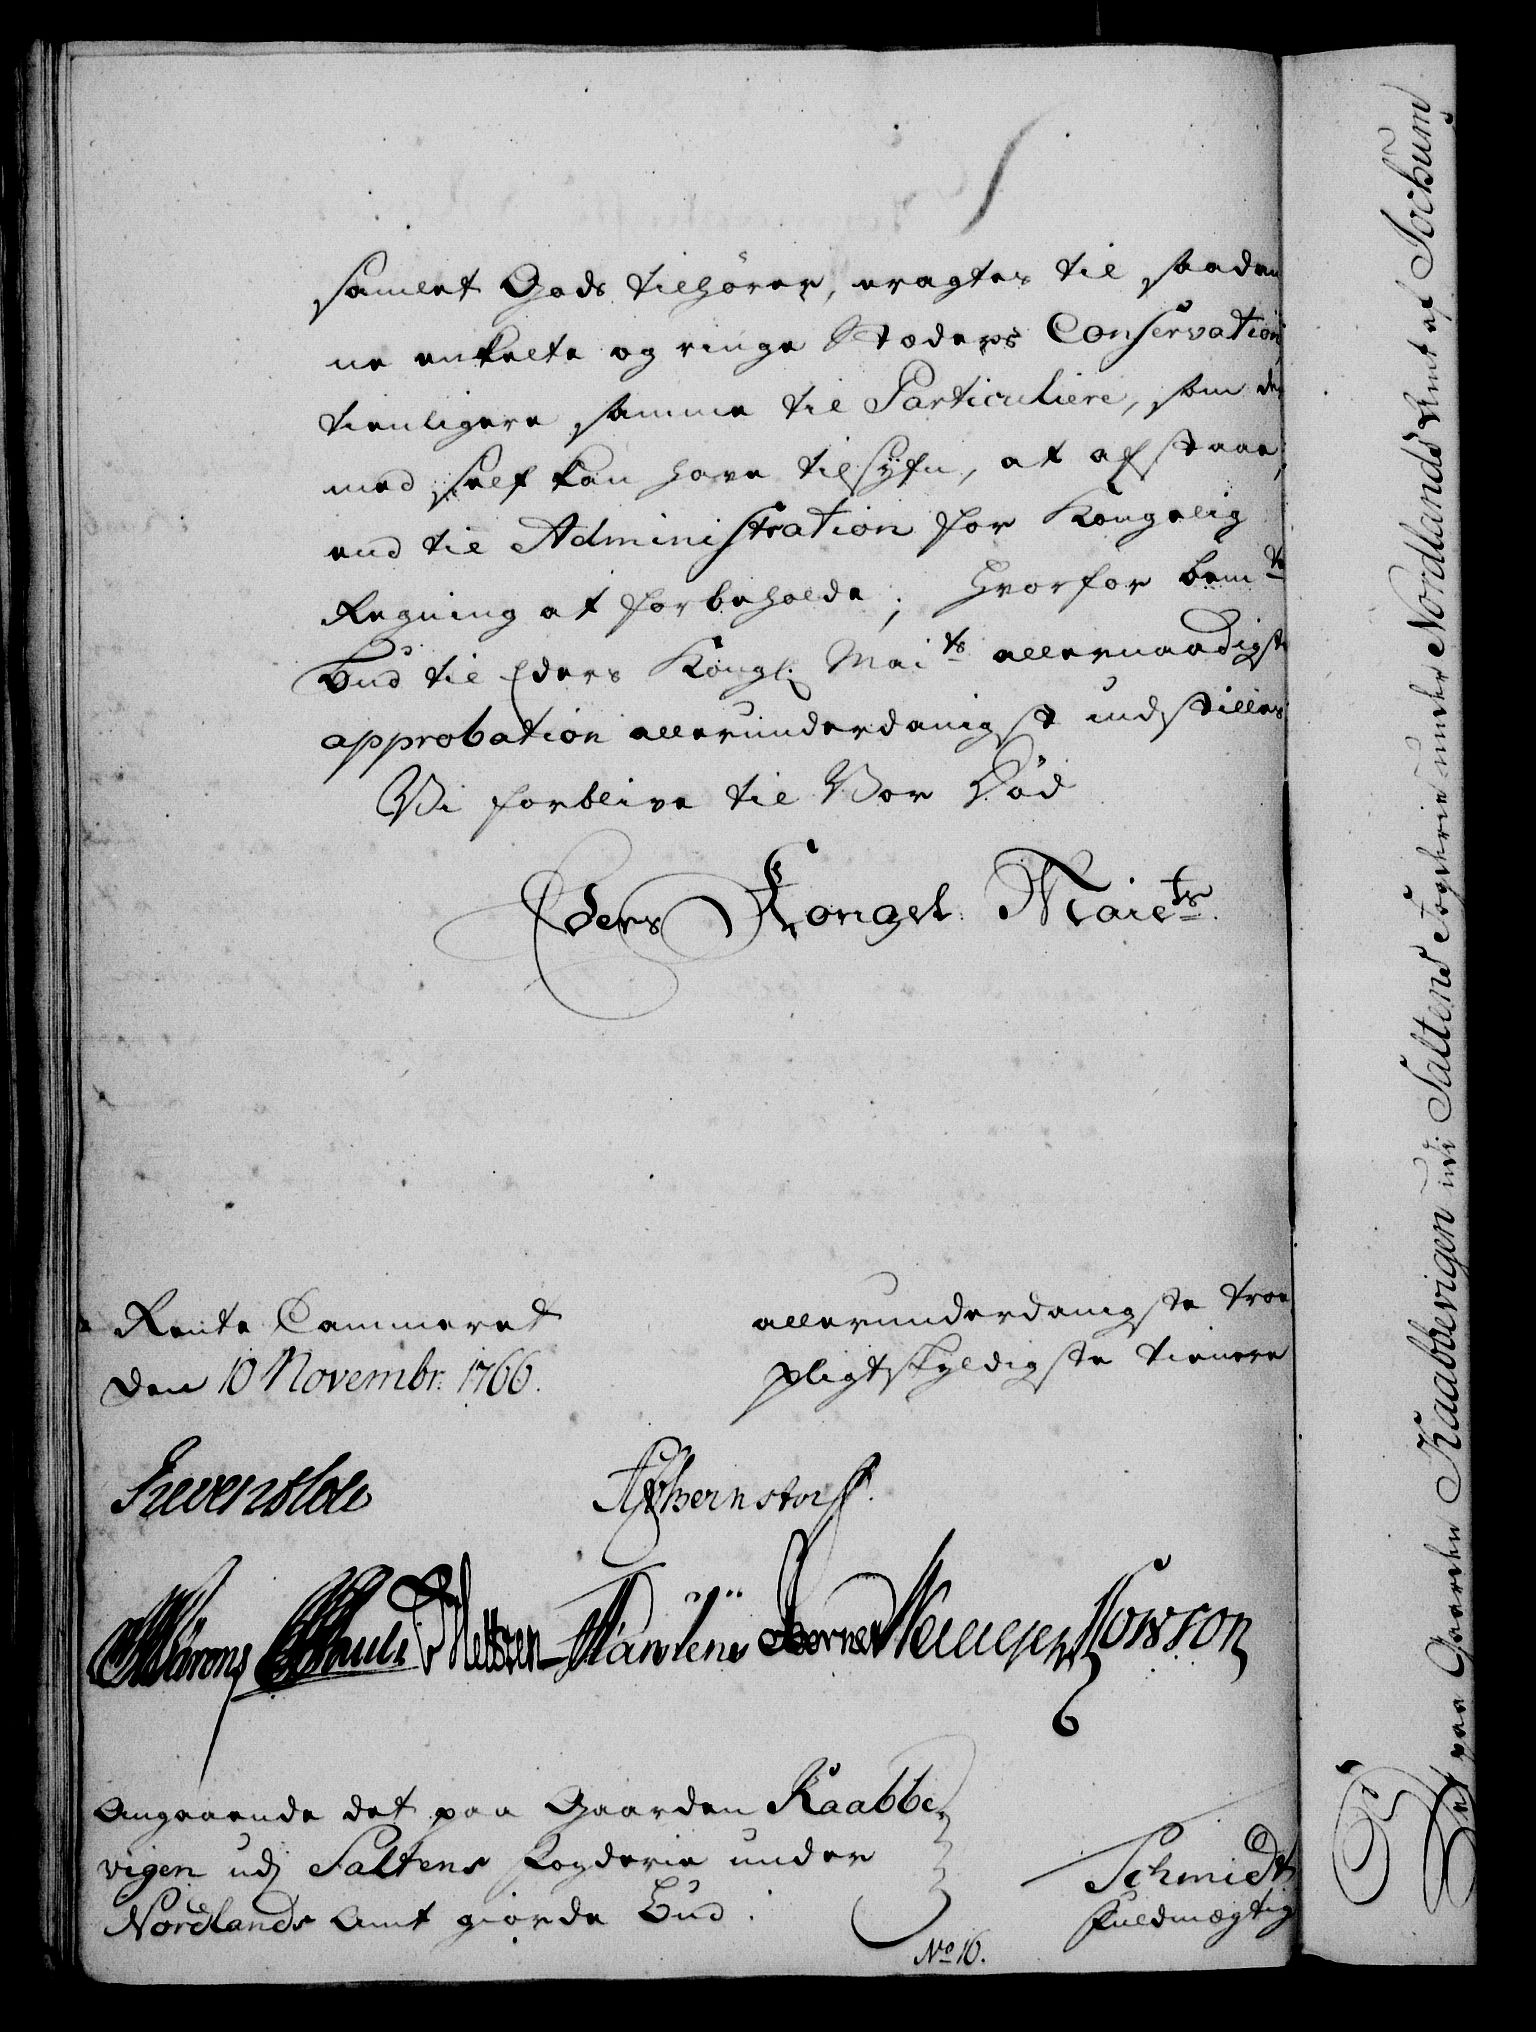 samlet Gods tilhører, eragtes til saadan
ne enkelte og ringe Stæders Conservation,
tienligere samme til Particuliere, som der
med self kan have tilsyfn, at afstaae,
end til Administration for Kongelig
Regning at forbeholde; hvorfor bemte
Bud til Eders Kongl. Maits allernaadigste
approbation allerunderdanigst indstilles
Vi forblive til Vor Død
Eders Kongel. Maiets.
Rente Cammeret
den 10 Novembr. 1766.
allerunderdanigste troe
pligtskyldigste tienere
Bernstorff.
Angaaende det paa Gaarden Kaabbe,
vigen udj Saltens Fogderie under
Nordlands Amt giorde Bud.
Schmidt
Fuldmægtig
No 16.
Det paa Gaarden Kaabbevigen udi Saltens Fogderie under Nordlands Amt af Jochum